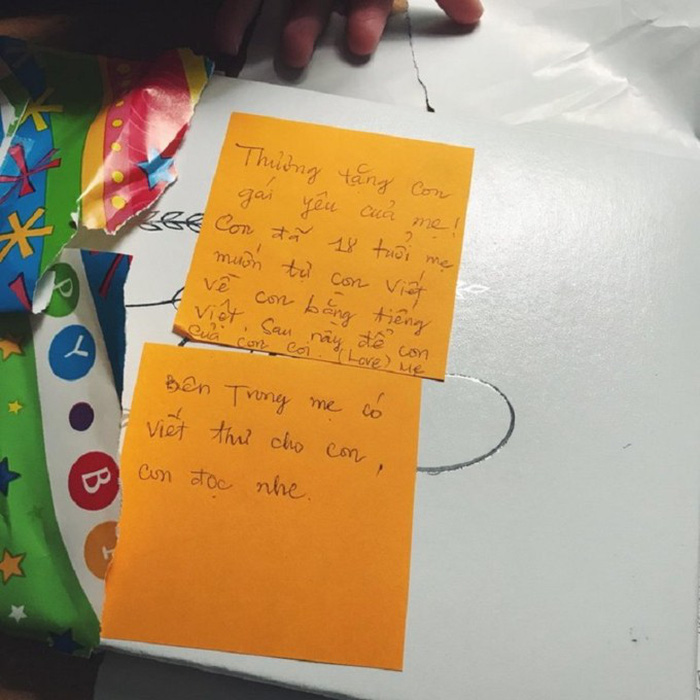 Thương tặng con
gái yêu của mẹ!
Con đã 18 tuổi mẹ
muốn tự con viết
về con bằng tiếng
việt. Sau này để con
của con coi. (Love) Mẹ
Bên Trong mẹ có
viết thư cho con,
con đọc nhe.
P
Y
B